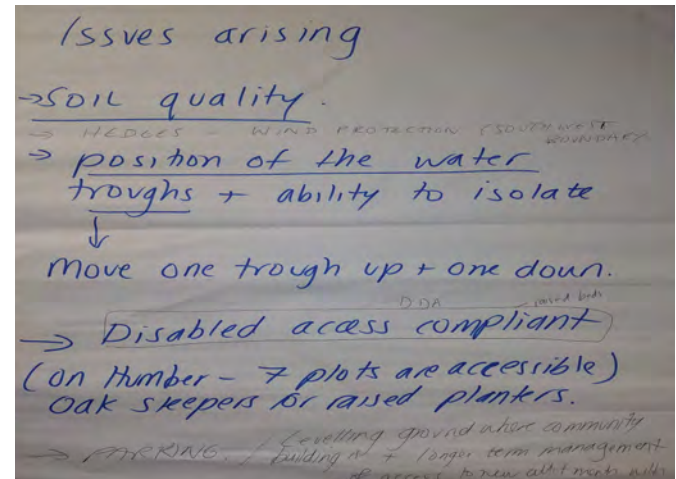 Issues arising
→ SOIL quality.
→ HEDGES - WIND PROTECTION (SOUTH WEST
BOUNDARY
→ position of the water
troughs + ability to isolate
↓
Move one trough up + one down.
DDA raised beds
→ Disabled access compliant
(on Humber - 7 plots are accessible)
Oak sleepers for raised planters.
→ PARKING. / Levelling ground where community
building is + longer term management
of access to new allotments with